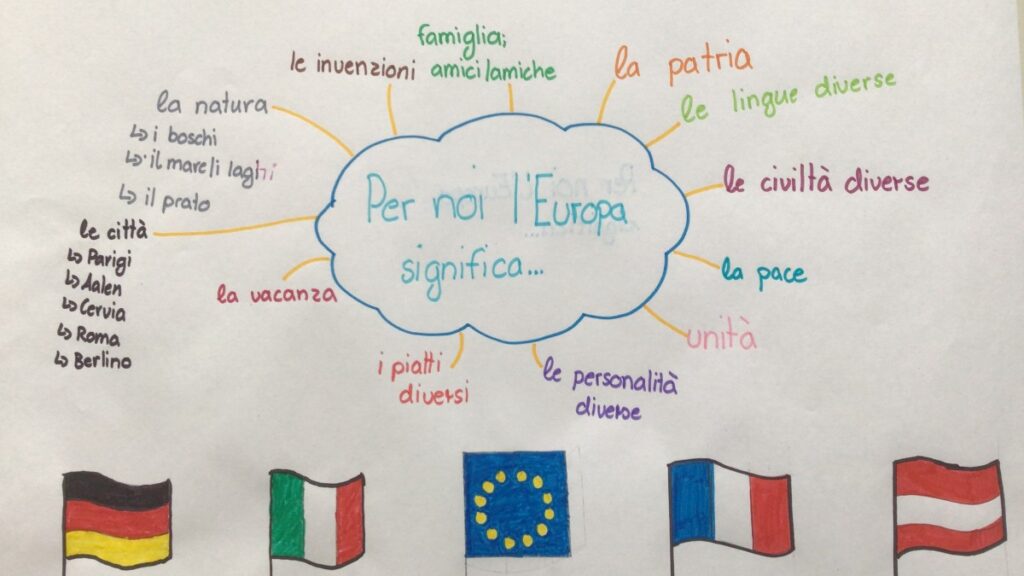 Per noi l'Europa
significa...
famiglia;
amici/amiche
le invenzioni
la natura
↳ i boschi
↳ il mare/i laghi
↳ il prato
le città
↳ Parigi
↳ Aalen
↳ Cervia
↳ Roma
↳ Berlino
la vacanza
i piatti
diversi
le personalità
diverse
unità
la pace
le civiltà diverse
le lingue diverse
la patria